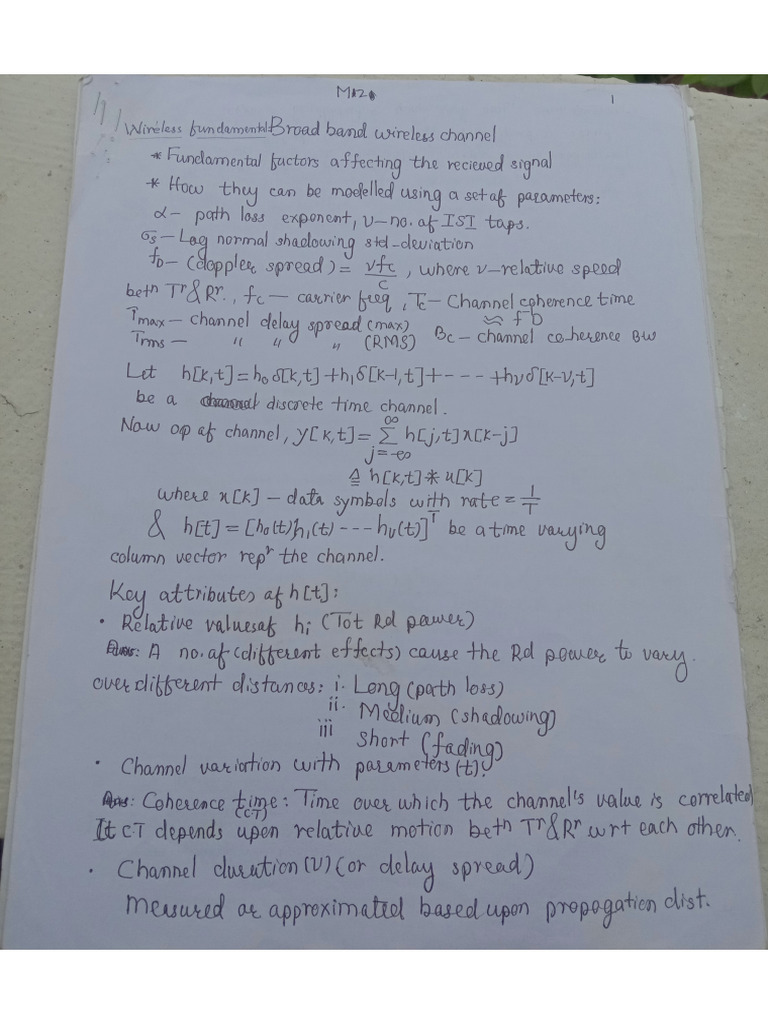 M12
1
Wireless fundamental: Broad band wireless channel
* Fundamental factors affecting the recieved signal
* How they can be modelled using a set of parameters:
α - path loss exponent, ν - no. of ISI taps.
σs - Log normal shadowing std-deviation
fD - (doppler spread) = νfc/c, where ν - relative speed
betn Tr & Rr., fc - carrier freq, Tc - Channel coherence time
≈ fD
τmax - channel delay spread (max)
τrms - " " " (RMS) Bc - channel coherence BW
Let h[k,t] = h0 δ[k,t] + h1 δ[k-1,t] + ---- + hν δ[k-ν,t]
be a discrete time channel.
Now op of channel, y[k,t] = Σ_{j=-∞}^{∞} h[j,t] x[k-j]
≜ h[k,t] * u[k]
where x[k] - data symbols with rate = 1/T
& h[t] = [h0(t) h1(t) --- hν(t)]^T be a time varying
column vector repr the channel.
Key attributes of h[t]:
• Relative values of hi (Tot Rd power)
A no. of (different effects) cause the Rd power to vary.
over different distances: i. Long (path loss)
ii. Medium (shadowing)
iii Short (fading)
• Channel variation with parameters (t).
Ans: Coherence time: Time over which the channel's value is correlated
(CT)
It CT depends upon relative motion betn Tr & Rr wrt each other.
• Channel duration (ν) (or delay spread)
Measured or approximated based upon propogation dist.